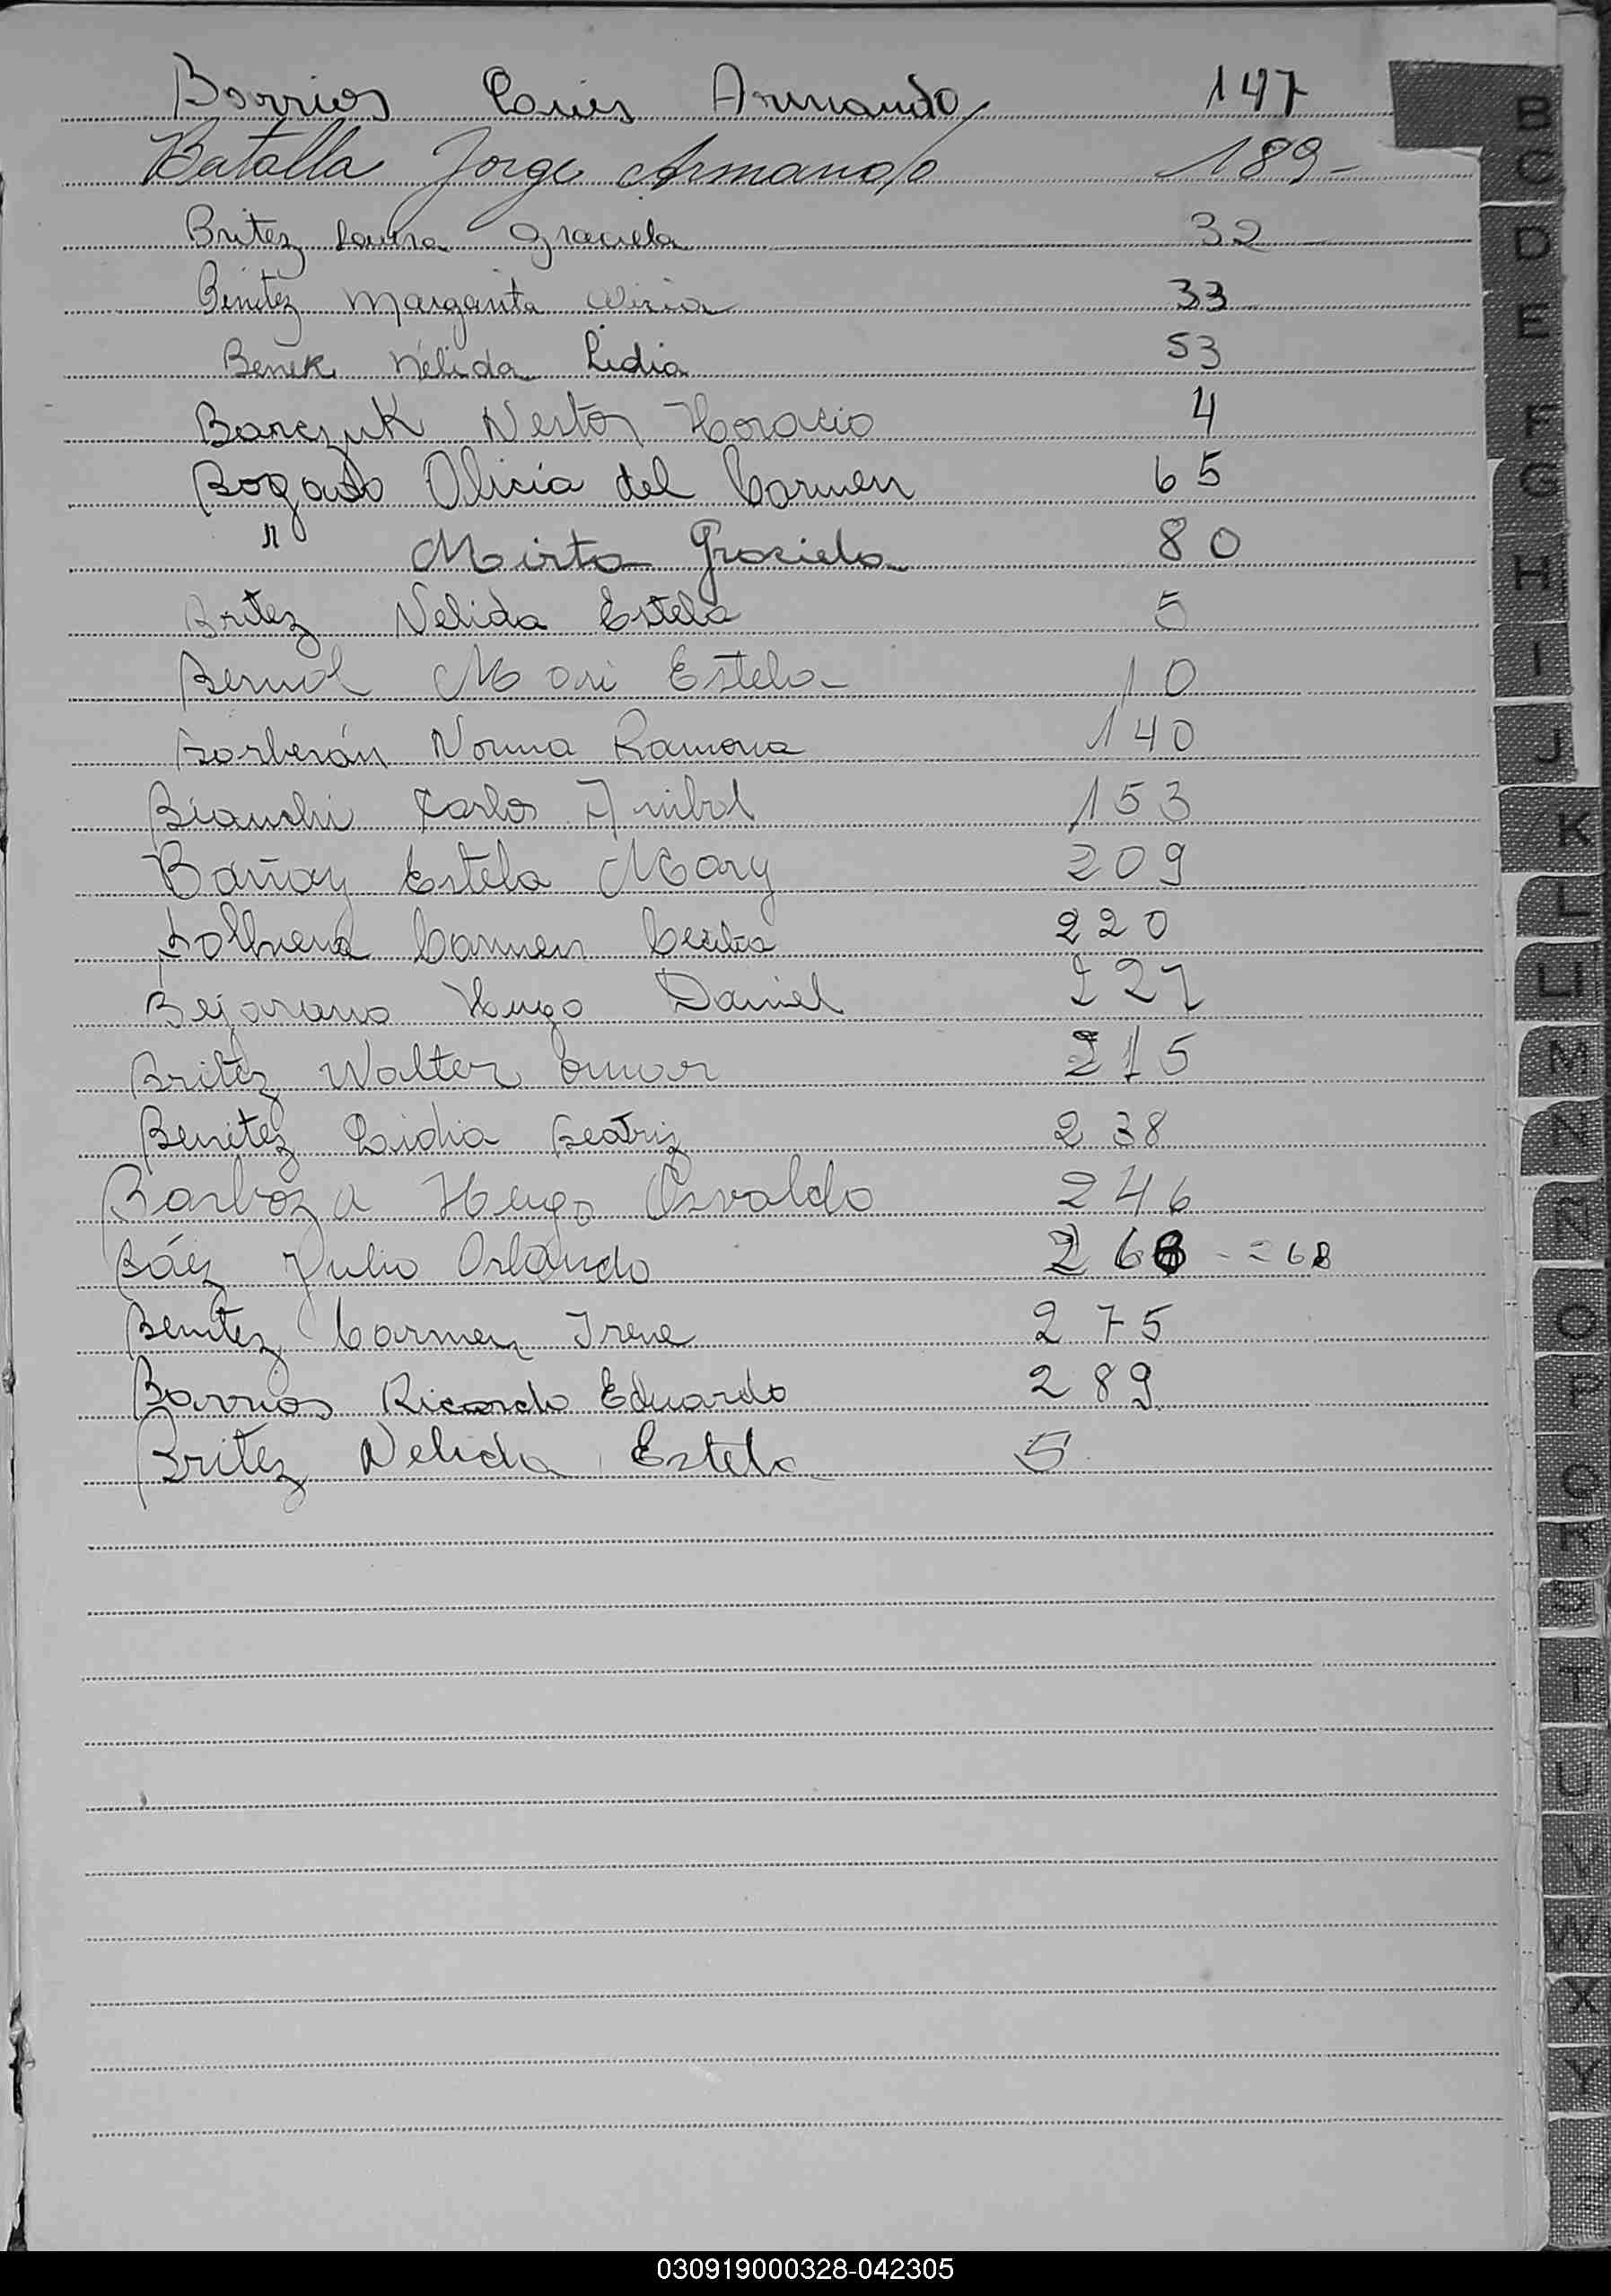 Barrios Luis Armando 147
Batalla Jorge Armando 189-
Britez Laura Graciela 32
Benitez Margarita 33
Benek Nélida Lidia 53
Barczuk Nestor Horacio 4
Bogado Alicia del Carmen 65
" Mirta Graciela 80
Britez Nelida Estela 5
Bernal Mari Estela 10
Barberán Norma Ramona 140
Bianchi Carlos Anibal 153
Bañay Estela Mary 209
Carmen Cecilia 220
Bejarano Hugo Daniel 227
Britez Walter Omar 215
Benitez Lidia Beatriz 238
Barboza Hugo Osvaldo 246
Báez Julio Orlando 268 - = 68
Benitez Carmen Irene 275
Barrios Ricardo Eduardo 289
Britez Nelida Estela 5
B
C
D
E
F
G
H
I
J
K
L
LL
M
N
Ñ
O
P
Q
R
S
T
U
V
W
X
Y
Z
030919000328-042305